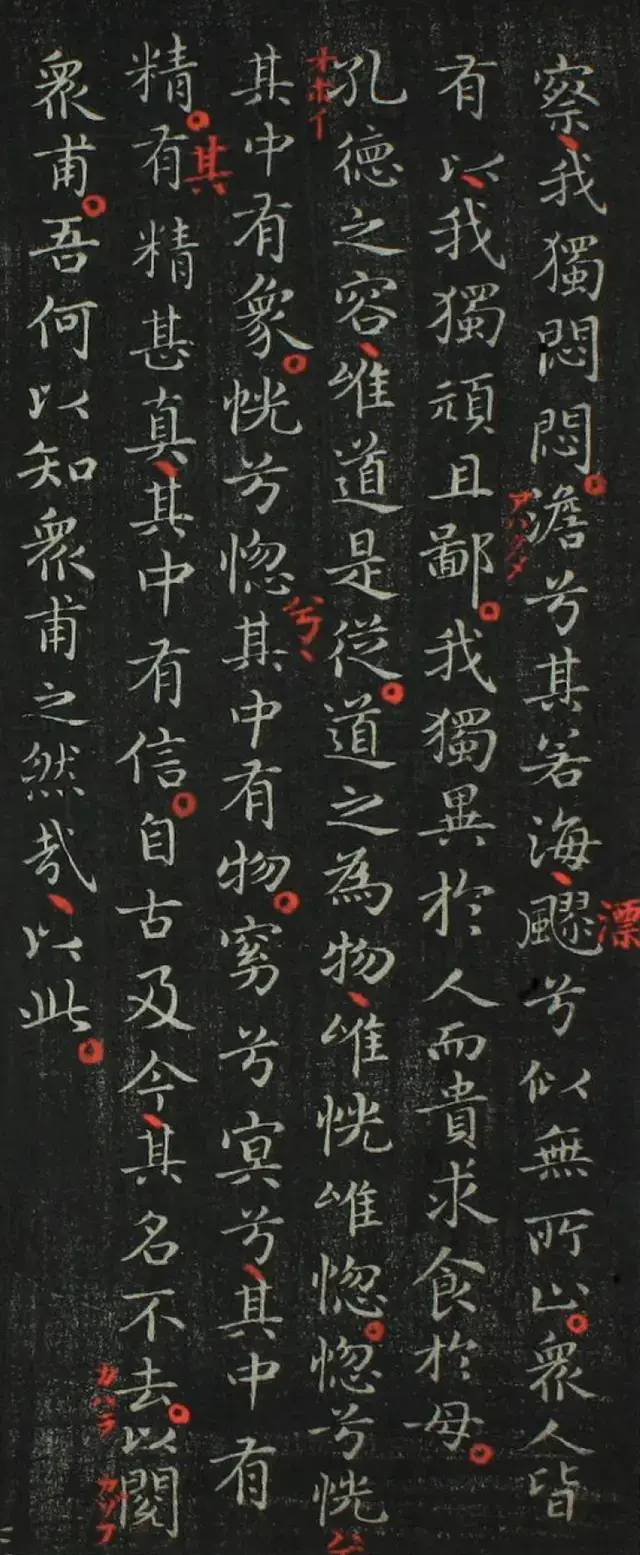 察、我獨悶悶。澹兮其若海、飂兮似無所止。衆人皆
漂
有以、我獨頑且鄙。我獨異於人而貴求食於母。
孔德之容、唯道是従。道之為物、唯恍唯惚。惚兮恍
オホイ
兮
其中有象。恍兮惚其中有物。窈兮冥兮、其中有
兮、
精。有精甚真、其中有信。自古及今、其名不去。以閱
其
カハラ
衆甫。吾何以知衆甫之然哉、以此。